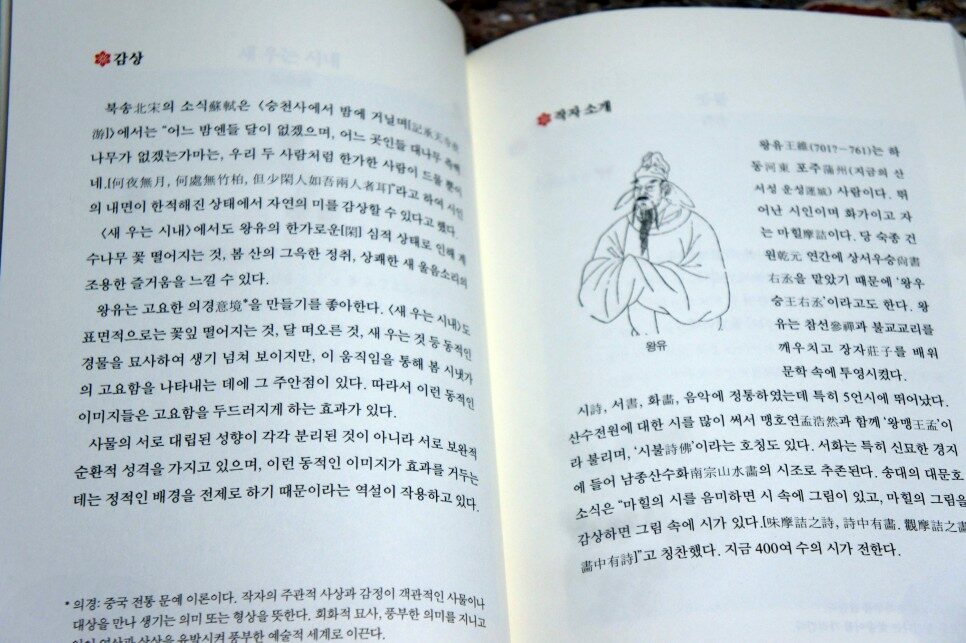 감상
북송北宋의 소식蘇軾은 〈승천사에서 밤에 거닐며[記承天寺夜
游]〉에서는 “어느 밤엔들 달이 없겠으며, 어느 곳인들 대나무 측백
나무가 없겠는가마는, 우리 두 사람처럼 한가한 사람이 드물 뿐이
네.[何夜無月, 何處無竹柏, 但少閑人如吾兩人者耳]”라고 하여 시인
의 내면이 한적해진 상태에서 자연의 미를 감상할 수 있다고 했다.
〈새 우는 시내〉에서도 왕유의 한가로운[閑] 심적 상태로 인해 계
수나무 꽃 떨어지는 것, 봄 산의 그윽한 정취, 상쾌한 새 울음소리의
조용한 즐거움을 느낄 수 있다.
왕유는 고요한 의경意境*을 만들기를 좋아한다. 〈새 우는 시내〉도
표면적으로는 꽃잎 떨어지는 것, 달 떠오른 것, 새 우는 것 등 동적인
경물을 묘사하여 생기 넘쳐 보이지만, 이 움직임을 통해 봄 시냇가
의 고요함을 나타내는 데에 그 주안점이 있다. 따라서 이런 동적인
이미지들은 고요함을 두드러지게 하는 효과가 있다.
사물의 서로 대립된 성향이 각각 분리된 것이 아니라 서로 보완적
순환적 성격을 가지고 있으며, 이런 동적인 이미지가 효과를 거두는
데는 정적인 배경을 전제로 하기 때문이라는 역설이 작용하고 있다.
* 의경: 중국 전통 문예 이론이다. 작자의 주관적 사상과 감정이 객관적인 사물이나
대상을 만나 생기는 의미 또는 형상을 뜻한다. 회화적 묘사, 풍부한 의미를 지니고
상상을 유발시켜 풍부한 예술적 세계로 이끈다.
작자 소개
왕유王維(701?~761)는 하
동河東 포주蒲州(지금의 산
서성 운성運城) 사람이다. 뛰
어난 시인이며 화가이고 자
는 마힐摩詰이다. 당 숙종 건
원乾元 연간에 상서우승尙書
右丞을 맡았기 때문에 ‘왕우
승王右丞’이라고도 한다. 왕
유는 참선參禪과 불교교리를
깨우치고 장자莊子를 배워
문학 속에 투영시켰다.
왕유
시詩, 서書, 화畫, 음악에 정통하였는데 특히 5언시에 뛰어났다.
산수전원에 대한 시를 많이 써서 맹호연孟浩然과 함께 ‘왕맹王孟’이
라 불리며, ‘시불詩佛’이라는 호칭도 있다. 서화는 특히 신묘한 경지
에 들어 남종산수화南宗山水畫의 시조로 추존된다. 송대의 대문호
소식은 “마힐의 시를 음미하면 시 속에 그림이 있고, 마힐의 그림을
감상하면 그림 속에 시가 있다.[味摩詰之詩, 詩中有畫. 觀摩詰之畫
畫中有詩]”고 칭찬했다. 지금 400여 수의 시가 전한다.